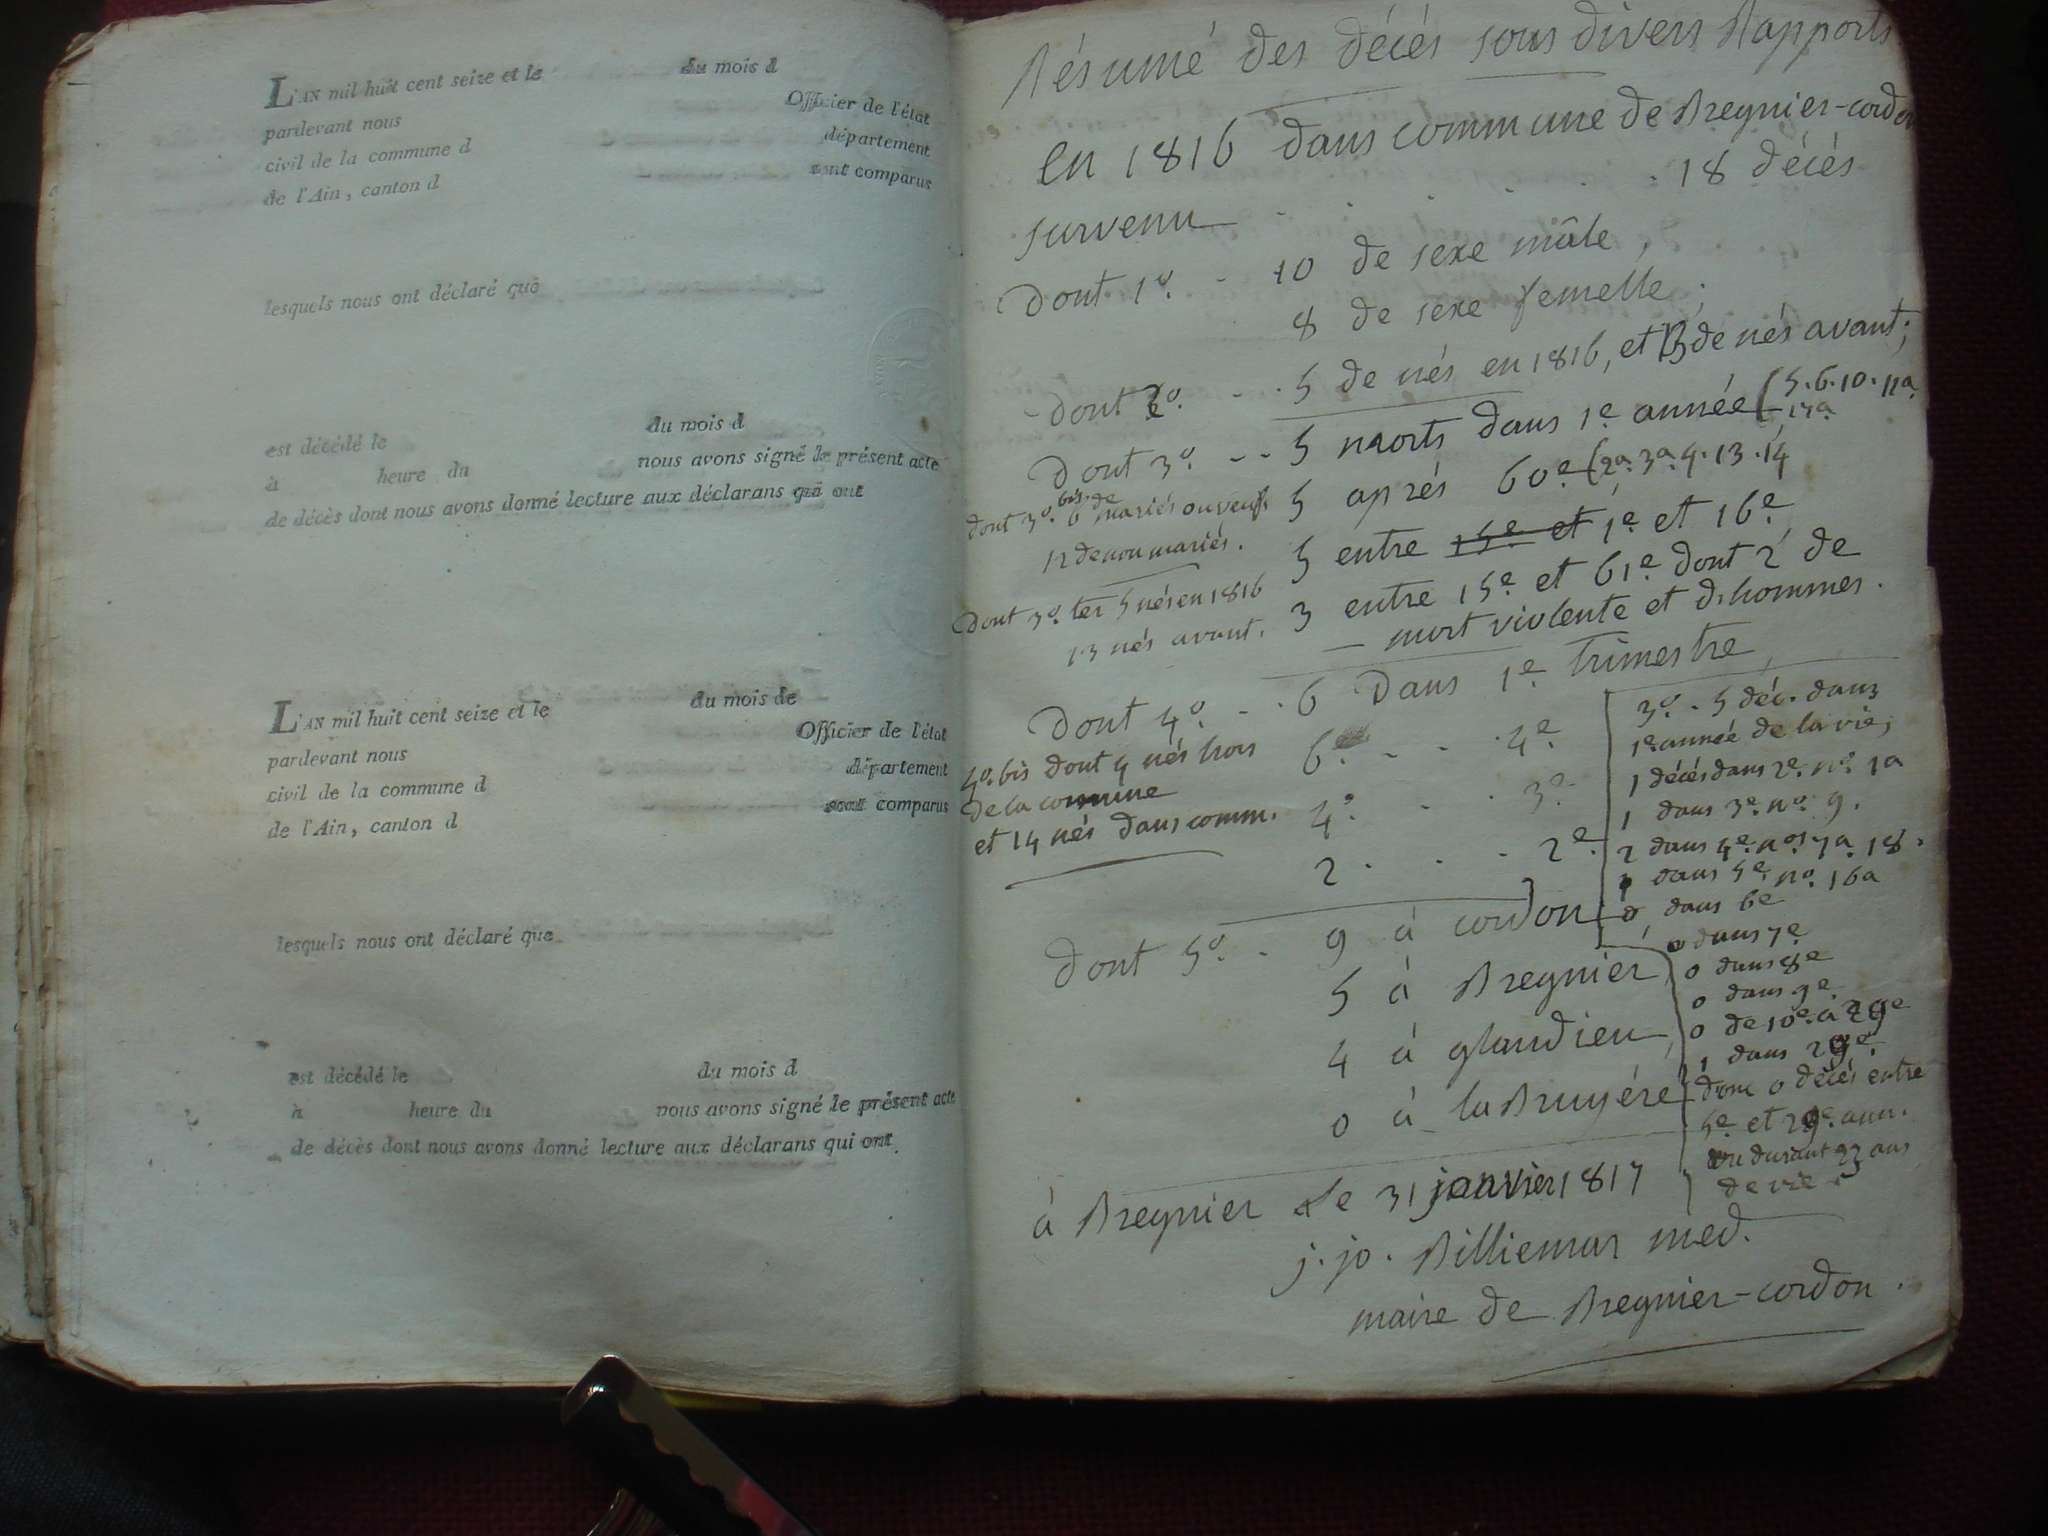 L'AN mil huit cent seize et le du mois d
pardevant nous Officier de l'état
civil de la commune d département
de l'Ain, canton d sont comparus
lesquels nous ont déclaré que
est décédé le du mois d
à heure du nous avons signé le présent acte
de décès dont nous avons donné lecture aux déclarans qui ont
L'AN mil huit cent seize et le du mois de
pardevant nous Officier de l'état
civil de la commune d département
de l'Ain, canton d sont comparus
lesquels nous ont déclaré que
est décédé le du mois d
à heure du nous avons signé le présent acte
de décès dont nous avons donné lecture aux déclarans qui ont
Résumé des décés sous divers Rapports
en 1816 dans commune de Bregnier-cordon
survenu . . . . . 18 décés
Dont 1º. - 10 de sexe mâle,
8 de sexe femelle;
Dont 2º. - - . 5 de nés en 1816, et 13 de nés avant;
Dont 3º. - - 5 morts dans 1e. année (5. 6. 10. 11a.
17a.
5 aprés 60e. (2a. 3a. 4. 13. 14
5 entre 15e. et 1e. et 16e.
3 entre 15e. et 61e. dont 2 de
mort violente et d'hommes.
dont 3º. bis. 6 de mariés ou veufs.
12 de non mariés.
Dont 3º. ter 5 nés en 1816
13 nés avant.
Dont 4º. - . 6 Dans 1e. trimestre,
6. - - . 4e.
4. . . 3e.
2. . . . 2e.
4º. bis dont 4 nés hors
de la commune
et 14 nés dans comm.
Dont 5º. - 9 à cordon
5 à Bregnier,
4 à glandieu,
0 à la Bruyére
3º. . 5 déc. dans
1e. année de la vie,
1 décés dans 2e. nº. 1a
1 dans 3e. nº. 9.
2 dans 4e. nos. 7a. 18.
1 dans 5e. nº. 16a
0 dans 6e
0 dans 7e
0 dans 8e
0 dans 9e.
0 de 10e. à 29e
1 dans 29e.
donc 0 décés entre
5e et 29e. ann.
ou durant 23 ans
de vie.
à Bregnier le 31 janvier 1817
j. jo. Billiemas méd.
maire de Bregnier-cordon.